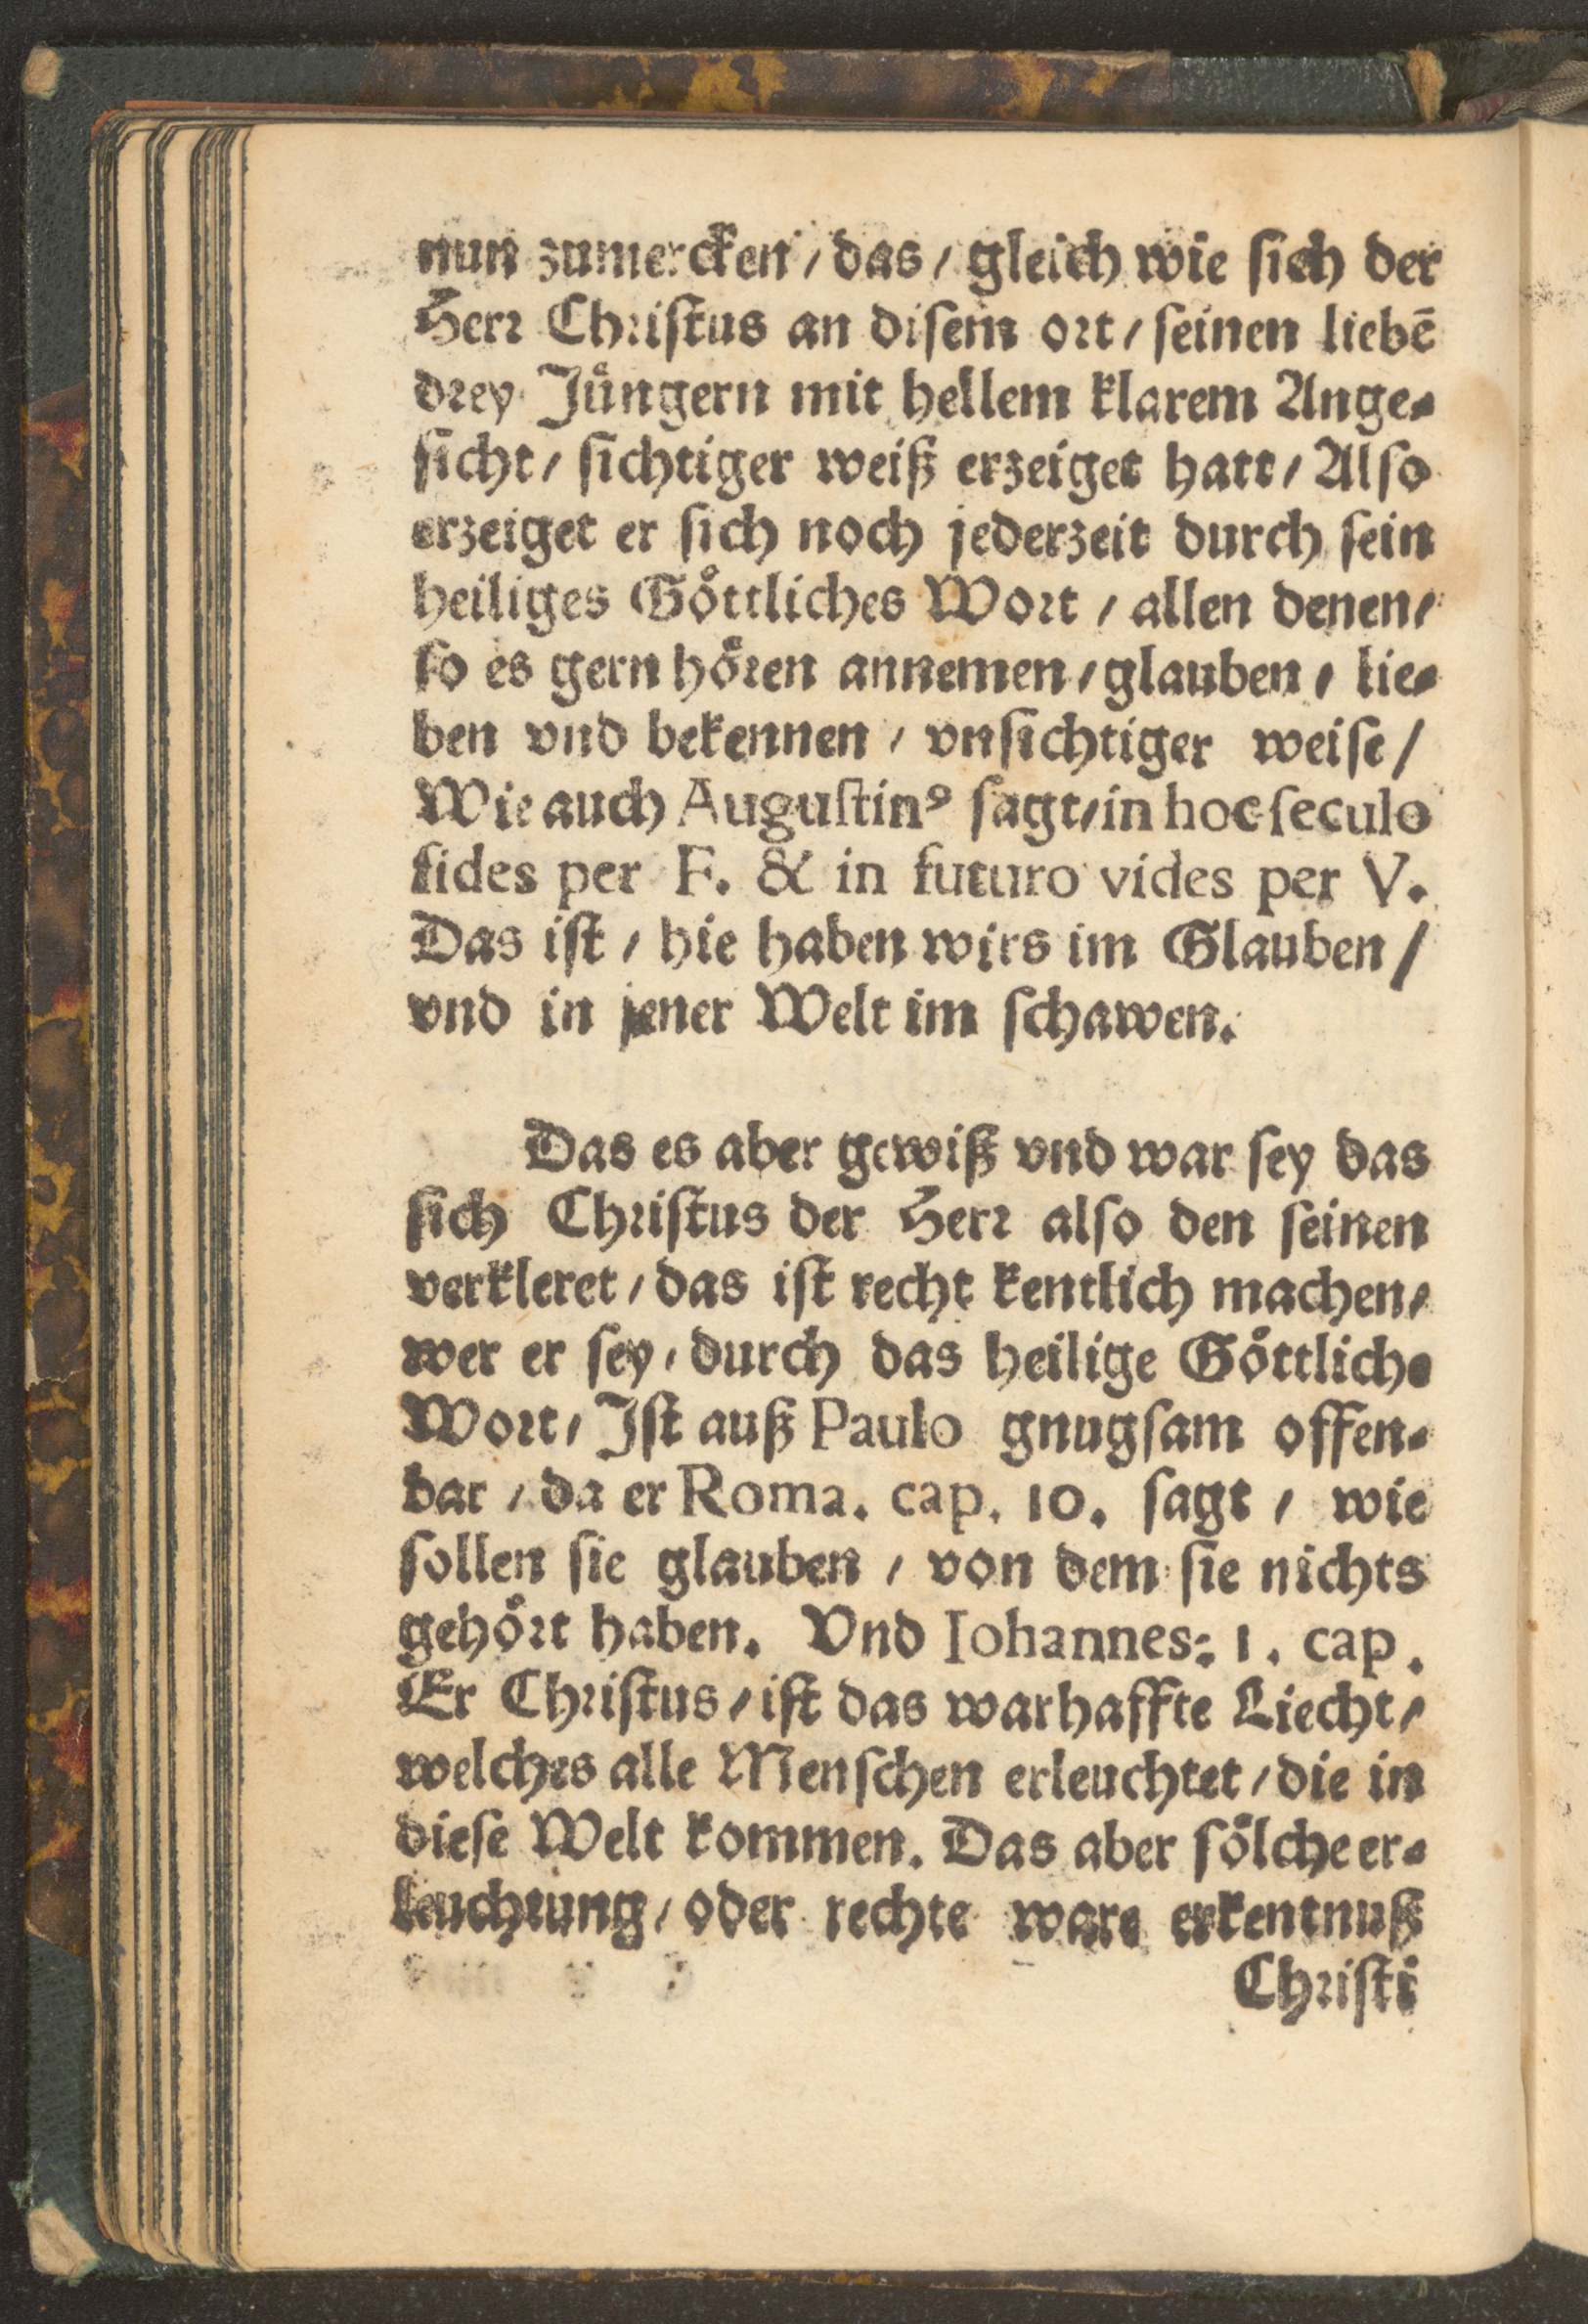 nun zumercken / das / gleich wie sich der
Herr Christus an disem ort / seinen liebē
drey Jüngern mit hellem klarem Ange-
sicht / sichtiger weiß erzeiget hatt / Also
erzeiget er sich noch jederzeit durch sein
heiliges Göttliches Wort / allen denen /
so es gern hören annemen / glauben / lie-
ben vnd bekennen / vnsichtiger weise /
Wie auch Augustin⁹ sagt / in hoc seculo
fides per F. & in futuro vides per V.
Das ist / hie haben wirs im Glauben /
vnd in jener Welt im schawen.
Das es aber gewiß vnd war sey das
sich Christus der Herr also den seinen
verkleret / das ist recht kentlich machen /
wer er sey / durch das heilige Göttliche
Wort / Ist auß Paulo gnugsam offen-
bar / da er Roma. cap. 10. sagt / wie
sollen sie glauben / von dem sie nichts
gehört haben. Vnd Iohannes: 1. cap.
Er Christus / ist das warhaffte Liecht /
welches alle Menschen erleuchtet / die in
diese Welt kommen. Das aber sölche er-
leuchtung / oder rechte ware erkentnuß
Christi